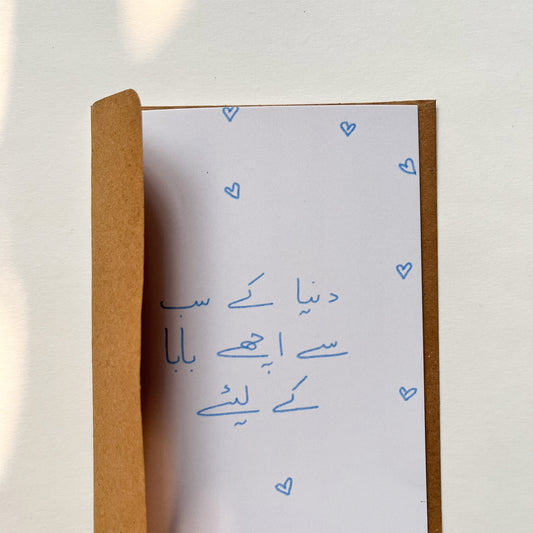 دنیا کے سب
سے اچھے بابا
کے لیئے